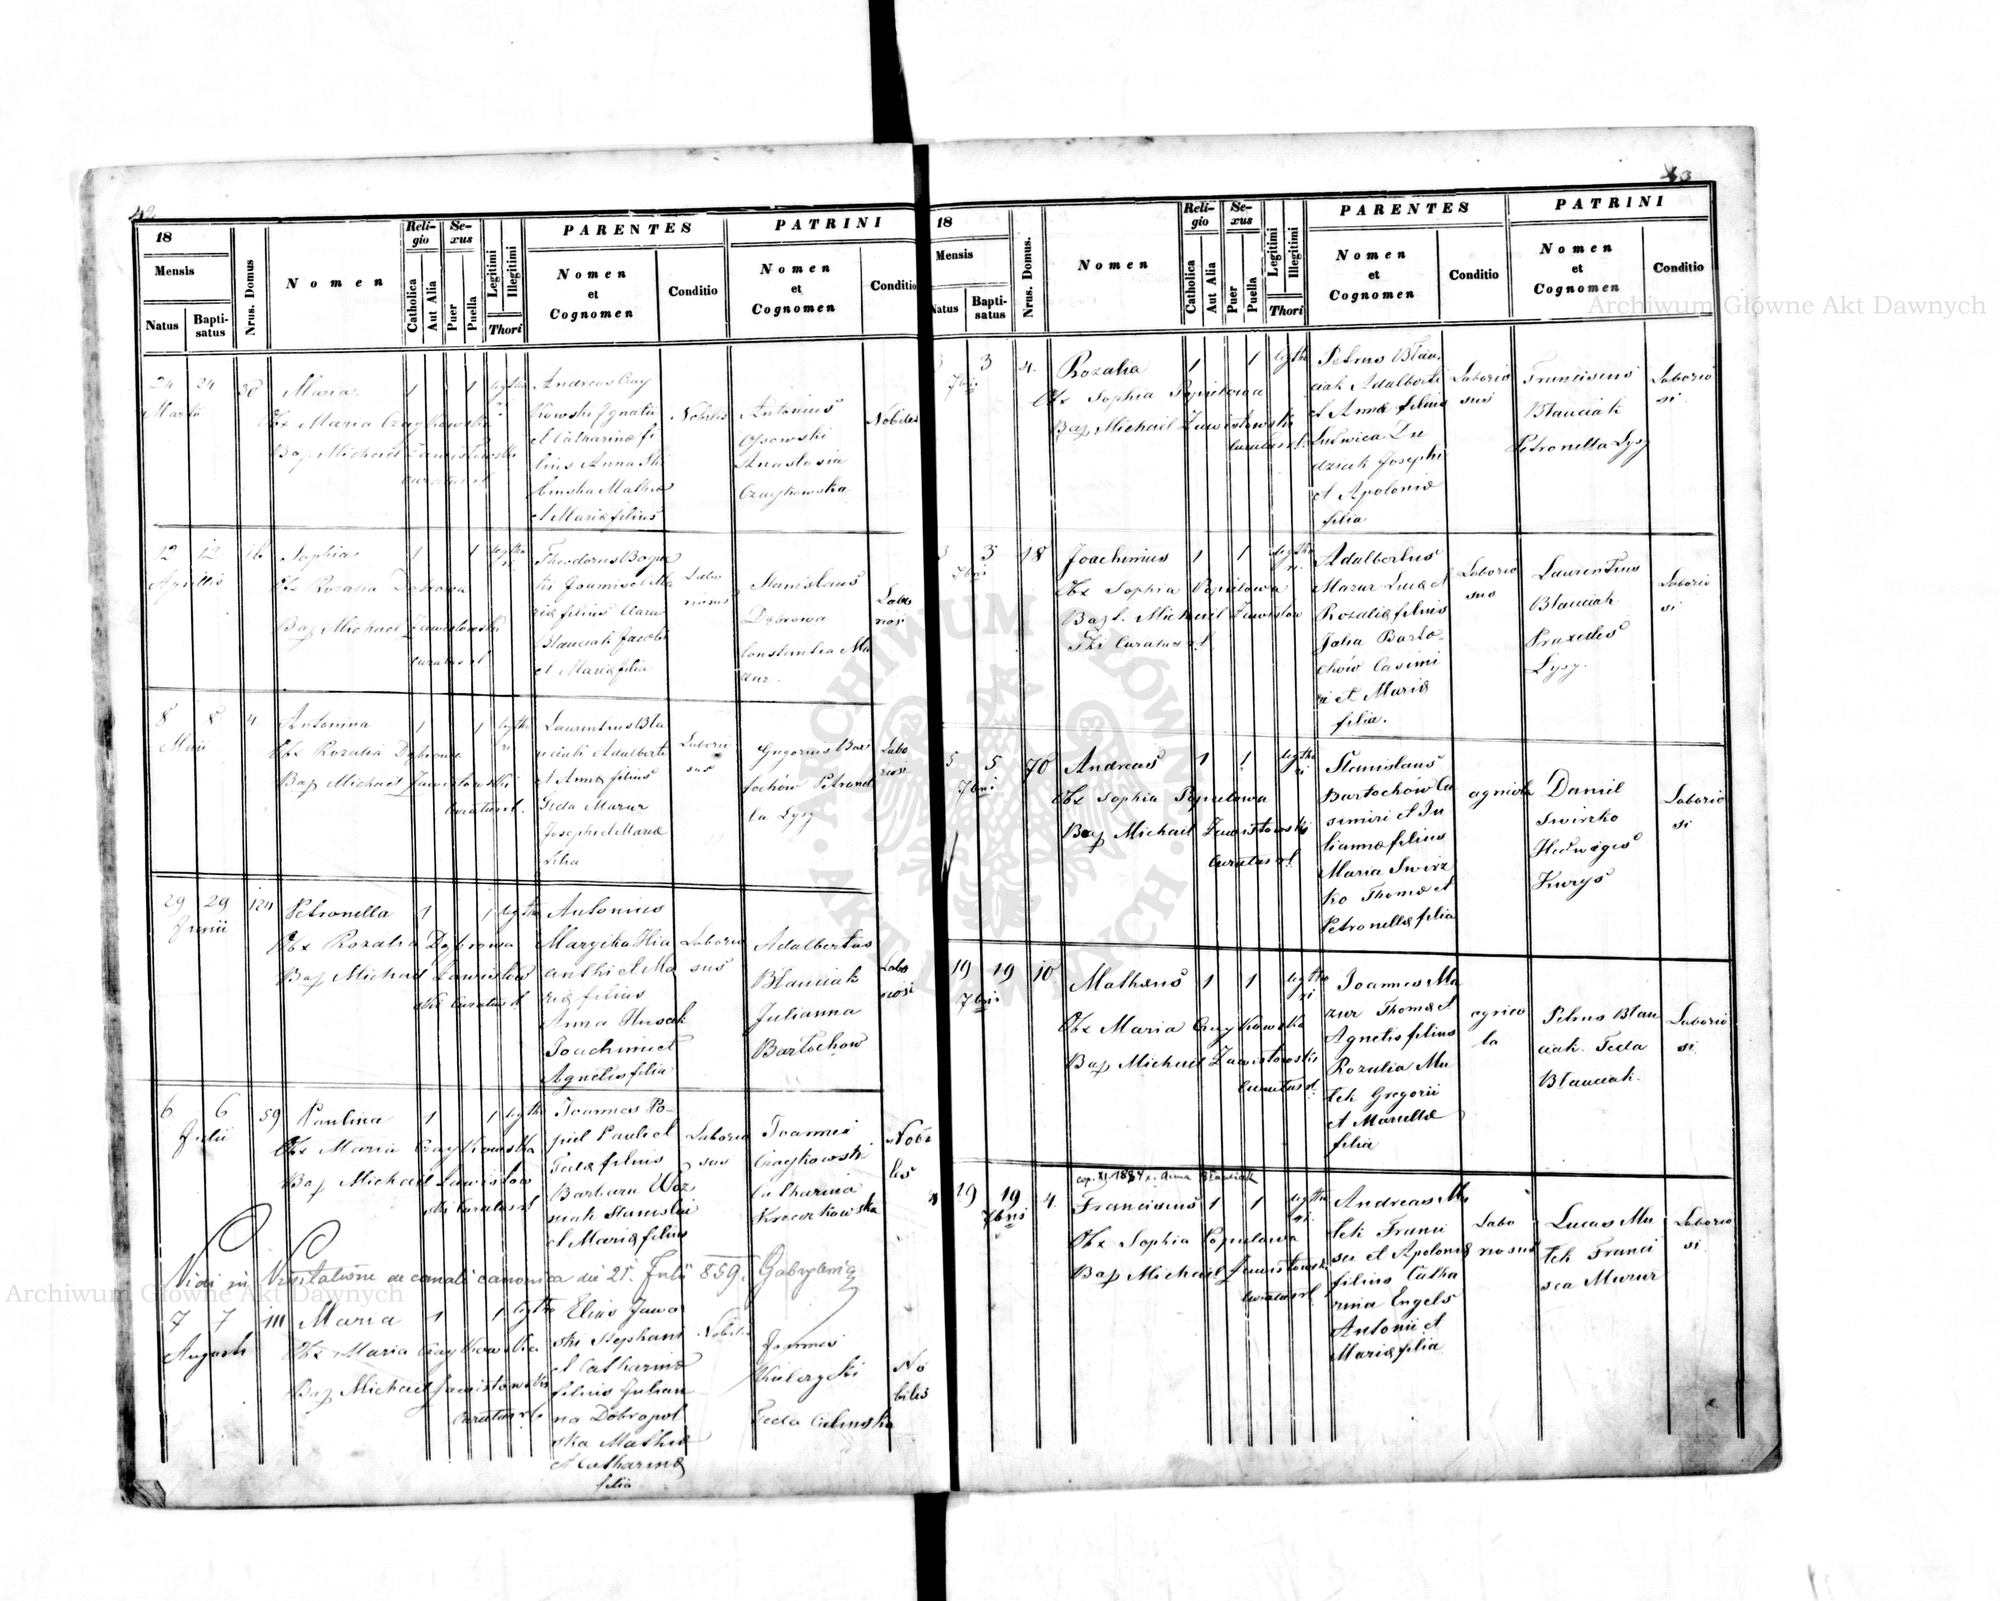 42
18
Mensis
Natus
Bapti-
satus
Nrus. Domus
Nomen
Reli-
gio
Catholica
Aut Alia
Se-
xus
Puer
Puella
Legitimi
Illegitimi
Thori
PARENTES
Nomen
et
Cognomen
Conditio
PATRINI
Nomen
et
Cognomen
Conditio
24 24
Martii
Maria
1 1
Obx Maria Czaykowska
Bap Michael Zawistowski
Curatus rl
Andreas Czay
kowski Ignatii
et Catharinæ fi
lius Anna
et Mariæ filius
Nobilis
Antonius
Anastasia
Czaykowska
Nobiles
12 12
Aprillis
16
Sophia
1 1
Obx Rozalia Dąbrowa
Bap Michael Zawistowski
Curatus rl
Theodorus
Joannis et Ma
riæ filius Clara
Błauciak Jacobi
et Mariæ filia
Labo
riosus
Stanislaus
Dąbrowa
Constantia Ma
zur.
Labo
riosi
8 8
Maii
4
Antonina
1 1
Obx Rozalia Dąbrowa
Bap Michael Zawistowski
Curatus rl.
Laurentius Bła
uciak Adalberti
et Annæ filius
Tecla Mazur
Josephi et Mariæ
filia
Laborio
sus
Gregorius Bar
tochów Petronel
la Łysy
Labo
riosi
29 29
Junii
124
Petronella
1 1
Obx Rozalia Dąbrowa
Bap Michael Zawistow
ski Curatus rl
Antonius
anthi et Ma
riæ filius
Anna Husak
Joachimi et
Agnetis filia
Laborio
sus
Adalbertus
Błauciak
Julianna
Bartochow
Labo
riosi
6 6
Julii
59
Paulina
1 1
Obx Maria Czaykowska
Bap Michael Zawistow
ski Curatus rl
Joannes Po-
piel Pauli et
Teclæ filius
Barbara Woz
niak Stanislai
et Mariæ filius
Laborio
sus
Joannes
Czaykowski
Catharina
Nobi
les
Vidi in Visitatione decanali canonica die 21. Julii 859.
7 7
Augusti
111
Maria
1 1
Obx Maria Czaykowska
Bap Michael Zawistowski
Curatus rl
Elias Jawor
ski Stephani
et Catharinæ
filius Julian
na Dobropol
ska Mathiæ
et Catharinæ
filia
Nobilis
Joannes
Tecla
No
biles
43
18
Mensis
Natus
Bapti-
satus
Nrus. Domus.
Nomen
Reli-
gio
Catholica
Aut Alia
Se-
xus
Puer
Puella
Legitimi
Illegitimi
Thori
PARENTES
Nomen
et
Cognomen
Conditio
PATRINI
Nomen
et
Cognomen
Conditio
3 3
7bri
4.
Rozalia
1 1
Obx Sophia Popielowa
Bap Michael Zawistowski
Curatus rl.
Petrus Błau
ciak Adalberti
et Annæ filius
Ludwica Du
dziak Josephi
et Apoloniæ
filia
Laborio
sus
Franciscus
Błauciak
Petronella Łysy
Laborio
si
3 3
7bri
18
Joachimus
1 1
Obx Sophia Popielowa
Bapt. Michael Zawistow
ski Curatus rl
Adalbertus
Mazur Lucæ et
Rozaliæ filius
Julia Barto-
chow Casimi
ri et Mariæ
filia.
Laborio
sus
Laurentius
Błauciak
Praxedes
Łysy.
Laborio
si
5 5
7bri
70
Andreas
1 1
Obx Sophia Popielowa
Bap Michael Zawistowski
Curatus rl.
Stanislaus
Bartochów Ca
simiri et Ju
liannæ filius
Maria Swirz
ko Thomæ et
Petronellæ filia
agricola
Daniel
Swirzko
Hedwiges
Kurys
Laborio
si
19 19
7bri
10
Mathæus
1 1
Obx Maria Czaykowska
Bap Michael Zawistowski
Curatus rl.
Joannes Ma
zur Thomæ et
Agnetis filius
Rozalia Mu
teh Gregorii
et Mariellæ
filia
agrico
la
Petrus Błau
ciak. Tecla
Błauciak.
Laborio
si.
cop. 1884 c. Anna Błauciak
29 19
7bri
4.
Franciscus
1 1
Obx Sophia Popielowa
Bap Michael Zawistowski
Curatus rl
Andreas Mu
teh Franci
sci et Apoloniæ
filius Catha
rina Engels
Antonii et
Mariæ filia
Labo
riosus
Lucas Mu
teh Franci
sca Mazur
Laborio
si
Archiwum Główne Akt Dawnych
Archiwum Główne Akt Dawnych
ARCHIWUM GŁÓWNE AKT DAWNYCH